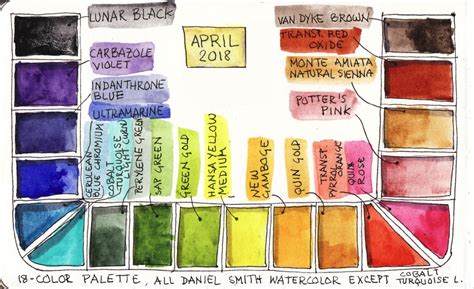 LUNAR BLACK
CARBAZOLE
VIOLET
INDANTHRONE
BLUE
ULTRAMARINE
APRIL
2018
VAN DYKE BROWN
TRANSP. RED
OXIDE
MONTE AMIATA
NATURAL SIENNA
POTTER'S
PINK
CERULEAN
BLUE CHROMIUM
COBALT
TURQUOISE
PERYLENE GREEN
SAP GREEN
GREEN GOLD
HANSA YELLOW
MEDIUM
NEW
GAMBOGE
QUIN GOLD
TRANSP.
PYRROL ORANGE
QUIN
ROSE
18-COLOR PALETTE, ALL DANIEL SMITH WATERCOLOR EXCEPT COBALT
TURQUOISE L.